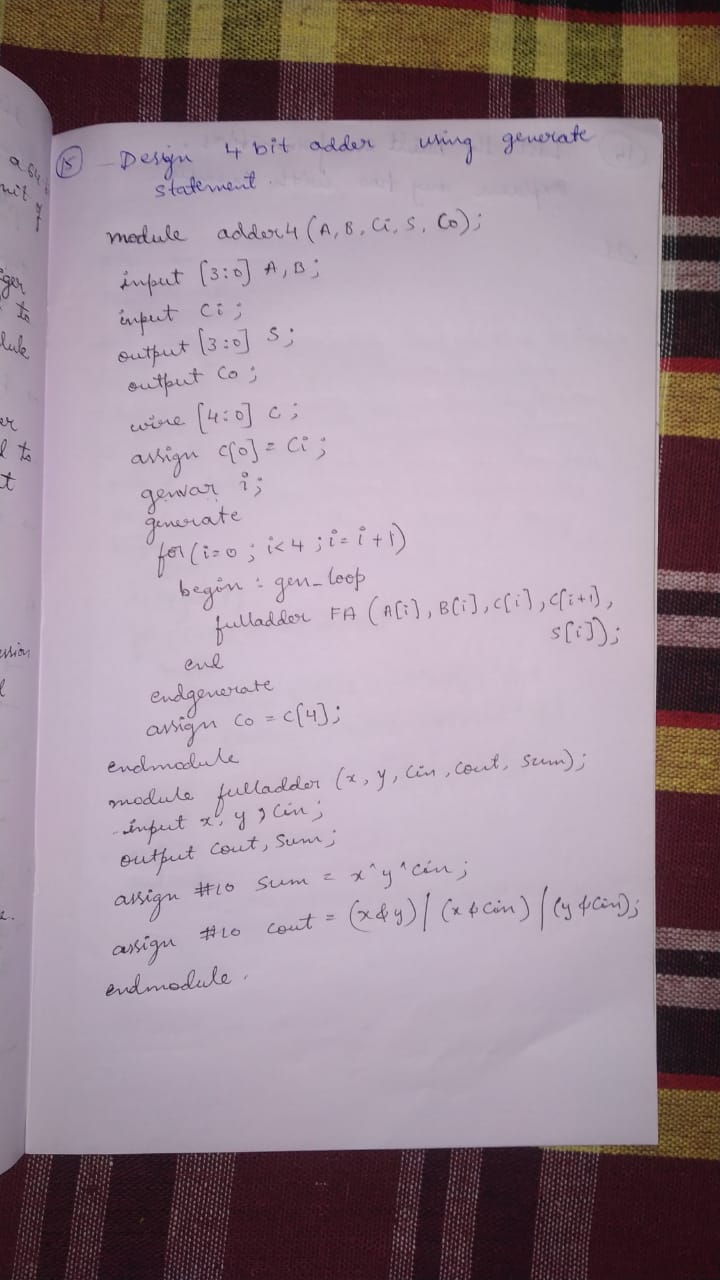 a 64
mit
ger
to
dule
er
l to
t
ssion
l
e.
15 Design 4 bit adder using generate
statement.
module adder4 (A, B, Ci, S, Co);
input [3:0] A, B;
input Ci;
output [3:0] S;
output Co;
wire [4:0] C;
assign C[0] = Ci;
genvar i;
generate
for (i=0; i<4; i=i+1)
begin : gen_loop
fulladder FA (A[i], B[i], C[i], C[i+1],
S[i]);
end
endgenerate
assign Co = C[4];
endmodule
module fulladder (x, y, Cin, Cout, Sum);
input x, y, Cin;
output Cout, Sum;
assign #10 Sum = x^y^Cin;
assign #10 Cout = (x&y) | (x & Cin) | (y & Cin);
endmodule.